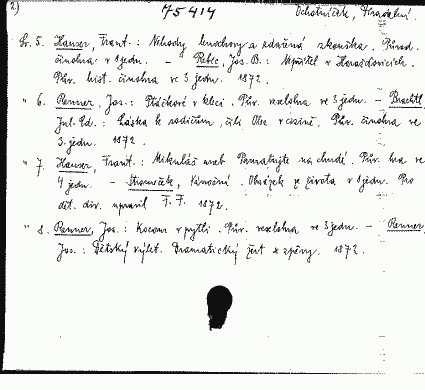 2)
75414
Ochotníček, Divadelní.
Sv. 5. Hauser, Frant.: Nehody lenochovy a zdařená zkouška. Původ.
činohra v 1 jedn. – Pekc, Jos. B.: Učitel v Horažďovicích.
Pův. hist. činohra ve 3 jedn. 1872.
" 6. Renner, Jos.: Ptáčkové v kleci. Pův. veselohra ve 3 jedn. –
Jul. Ed.: Láska k rodičům, čili Otec v cizině. Pův. činohra ve
3. jedn. 1872.
" 7. Hauser, Frant.: Mikuláš aneb Pamatujte na chudé. Pův. hra ve
4 jedn. – Vánoční. Obrázek ze života v 1 jedn. Pro
dět. div. upravil F. F. 1872.
" 8. Renner, Jos.: Kocour v pytli. Pův. veselohra ve 3 jedn. – Renner,
Jos.: Dětský výlet. Dramatický žert se zpěvy. 1872.